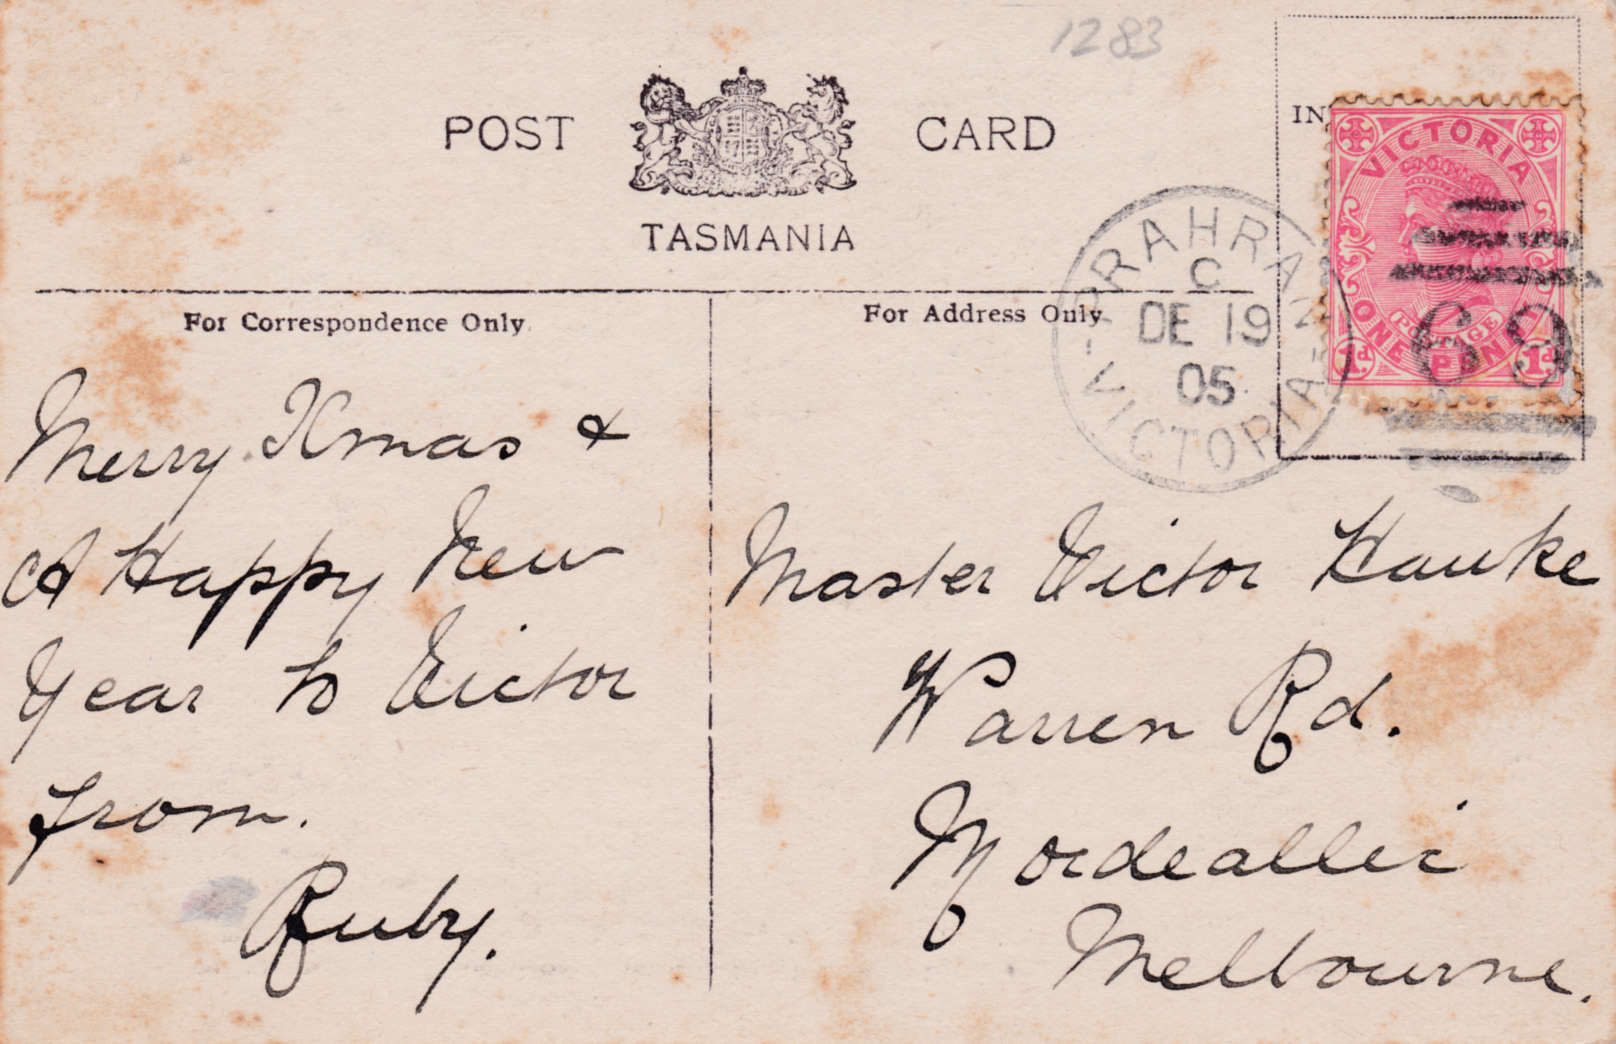 1283
POST CARD
TASMANIA
IN
VICTORIA
POSTAGE
ONE PENNY
1d 1d
PRAHRAN
C
DE 19
05
VICTORIA
69
For Correspondence Only
For Address Only
Merry Xmas &
A Happy New
Year to Victor
from.
Ruby.
Master Victor Hauke
Warren Rd.
Mordeallic
Melbourne.